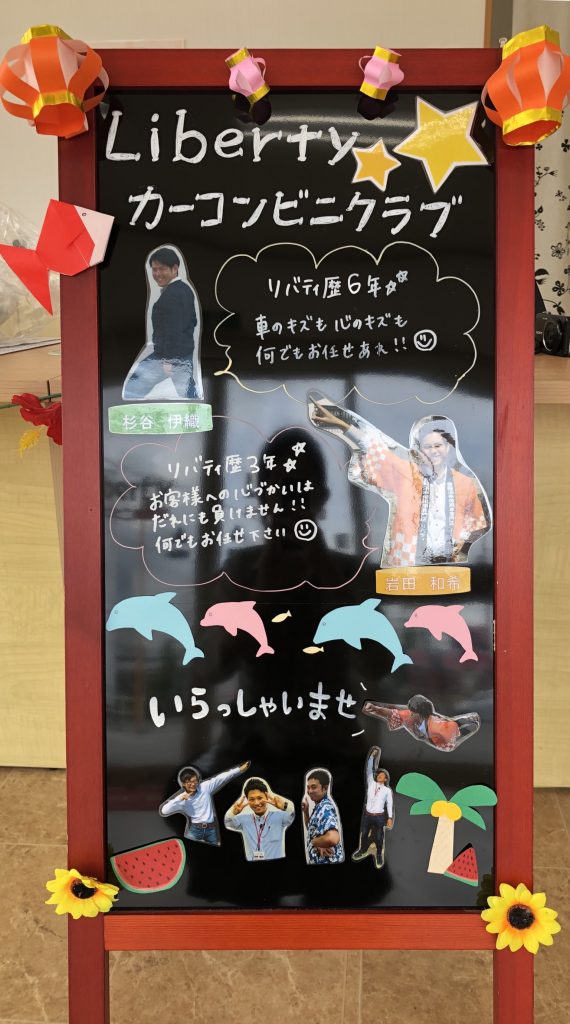 Liberty
カーコンビニクラブ
リバティ歴6年
車のキズも心のキズも
何でもお任せあれ!!
杉谷 伊織
リバティ歴3年
お客様への心づかいは
だれにも負けません!!
何でもお任せ下さい
岩田 和希
いらっしゃいませ